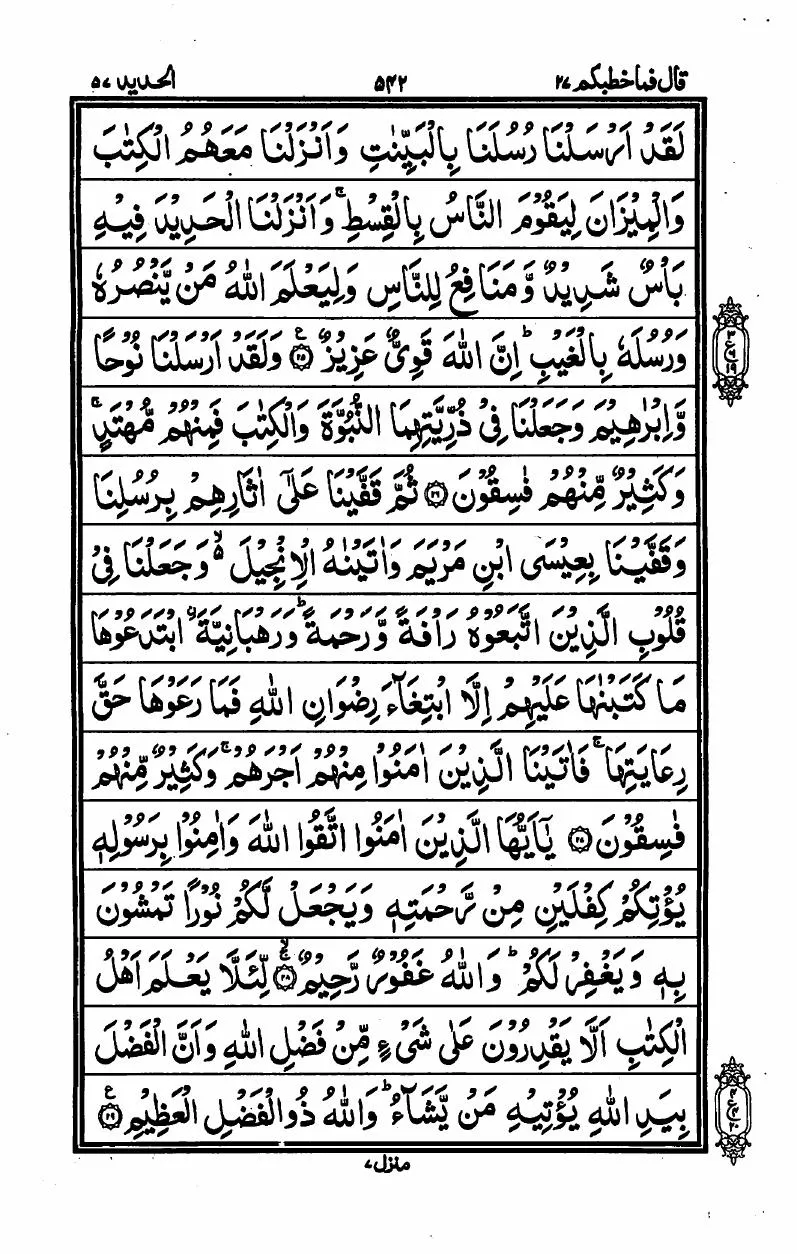 قال فما خطبكم ٢٧
٥٤٢
الحديد ٥٧
لَقَدْ اَرْسَلْنَا رُسُلَنَا بِالْبَيِّنٰتِ وَاَنْزَلْنَا مَعَهُمُ الْكِتٰبَ
وَالْمِيْزَانَ لِيَقُوْمَ النَّاسُ بِالْقِسْطِ ۚ وَاَنْزَلْنَا الْحَدِيْدَ فِيْهِ
بَاْسٌ شَدِيْدٌ وَّمَنَافِعُ لِلنَّاسِ وَلِيَعْلَمَ اللّٰهُ مَنْ يَّنْصُرُهٗ
وَرُسُلَهٗ بِالْغَيْبِ ؕ اِنَّ اللّٰهَ قَوِىٌّ عَزِيْزٌ ۝۲۵ ع وَلَقَدْ اَرْسَلْنَا نُوْحًا
وَّاِبْرٰهِيْمَ وَجَعَلْنَا فِىْ ذُرِّيَّتِهِمَا النُّبُوَّةَ وَالْكِتٰبَ فَمِنْهُمْ مُّهْتَدٍ ۚ
وَكَثِيْرٌ مِّنْهُمْ فٰسِقُوْنَ ۝۲۶ ثُمَّ قَفَّيْنَا عَلٰٓى اٰثَارِهِمْ بِرُسُلِنَا
وَقَفَّيْنَا بِعِيْسَى ابْنِ مَرْيَمَ وَاٰتَيْنٰهُ الْاِنْجِيْلَ ۙ۬ وَجَعَلْنَا فِىْ
قُلُوْبِ الَّذِيْنَ اتَّبَعُوْهُ رَاْفَةً وَّرَحْمَةً ؕ وَرَهْبَانِيَّةَ ۨ ابْتَدَعُوْهَا
مَا كَتَبْنٰهَا عَلَيْهِمْ اِلَّا ابْتِغَآءَ رِضْوَانِ اللّٰهِ فَمَا رَعَوْهَا حَقَّ
رِعَايَتِهَا ۚ فَاٰتَيْنَا الَّذِيْنَ اٰمَنُوْا مِنْهُمْ اَجْرَهُمْ ۚ وَكَثِيْرٌ مِّنْهُمْ
فٰسِقُوْنَ ۝۲۷ يٰۤاَيُّهَا الَّذِيْنَ اٰمَنُوا اتَّقُوا اللّٰهَ وَاٰمِنُوْا بِرَسُوْلِهٖ
يُؤْتِكُمْ كِفْلَيْنِ مِنْ رَّحْمَتِهٖ وَيَجْعَلْ لَّكُمْ نُوْرًا تَمْشُوْنَ
بِهٖ وَيَغْفِرْ لَكُمْ ؕ وَاللّٰهُ غَفُوْرٌ رَّحِيْمٌ ۝۲۸ ۙ لِّئَلَّا يَعْلَمَ اَهْلُ
الْكِتٰبِ اَلَّا يَقْدِرُوْنَ عَلٰى شَىْءٍ مِّنْ فَضْلِ اللّٰهِ وَاَنَّ الْفَضْلَ
بِيَدِ اللّٰهِ يُؤْتِيْهِ مَنْ يَّشَآءُ ؕ وَاللّٰهُ ذُو الْفَضْلِ الْعَظِيْمِ ۝۲۹ ع
منزل ٧